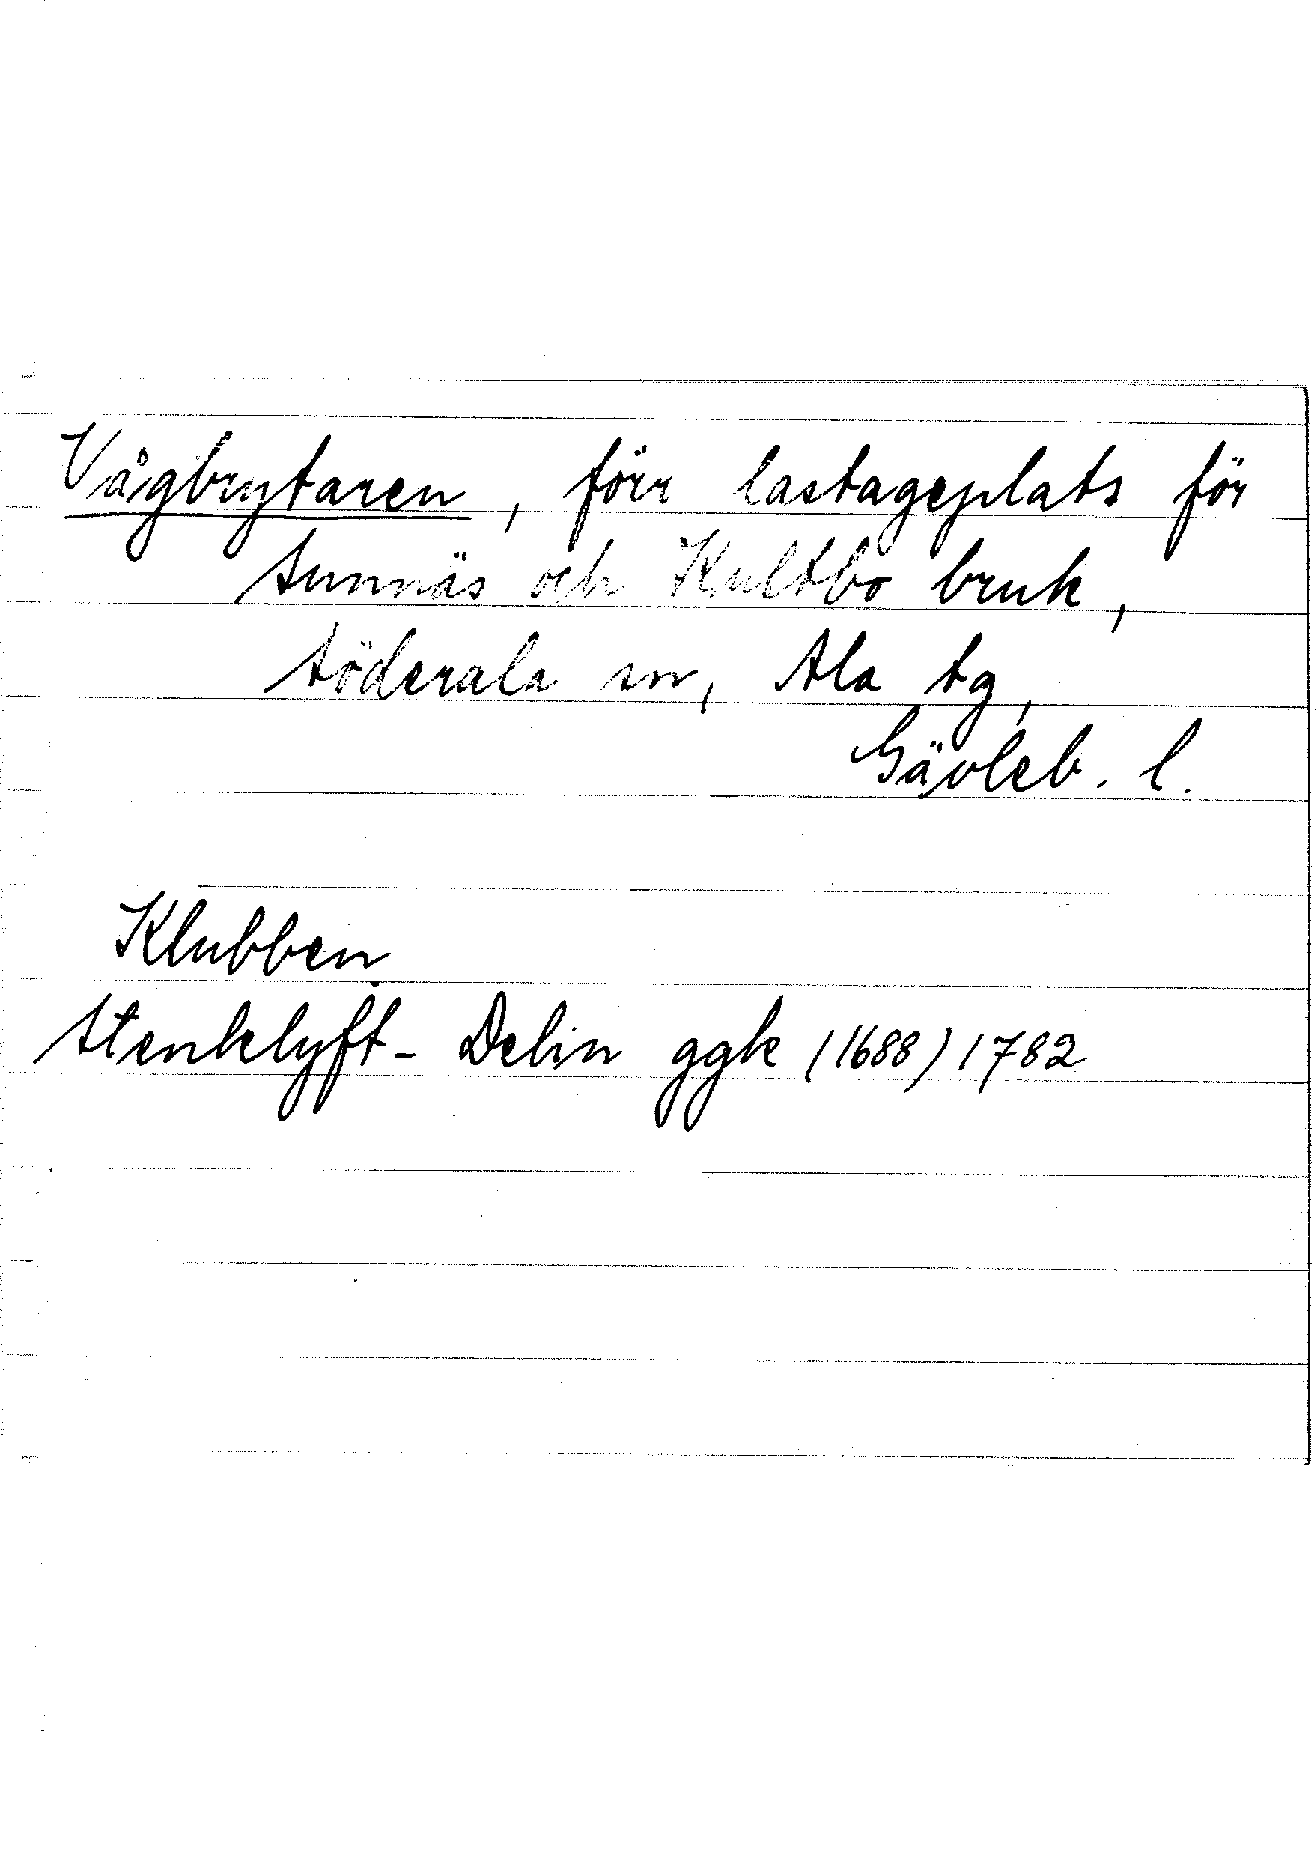 Vågbrytaren, förr lastageplats för
Sunnäs och Kultbo bruk,
Söderala sn, Ala tg,
Gävleb. l.
Klubben
Stenklyft - Delin ggk (1688) 1782